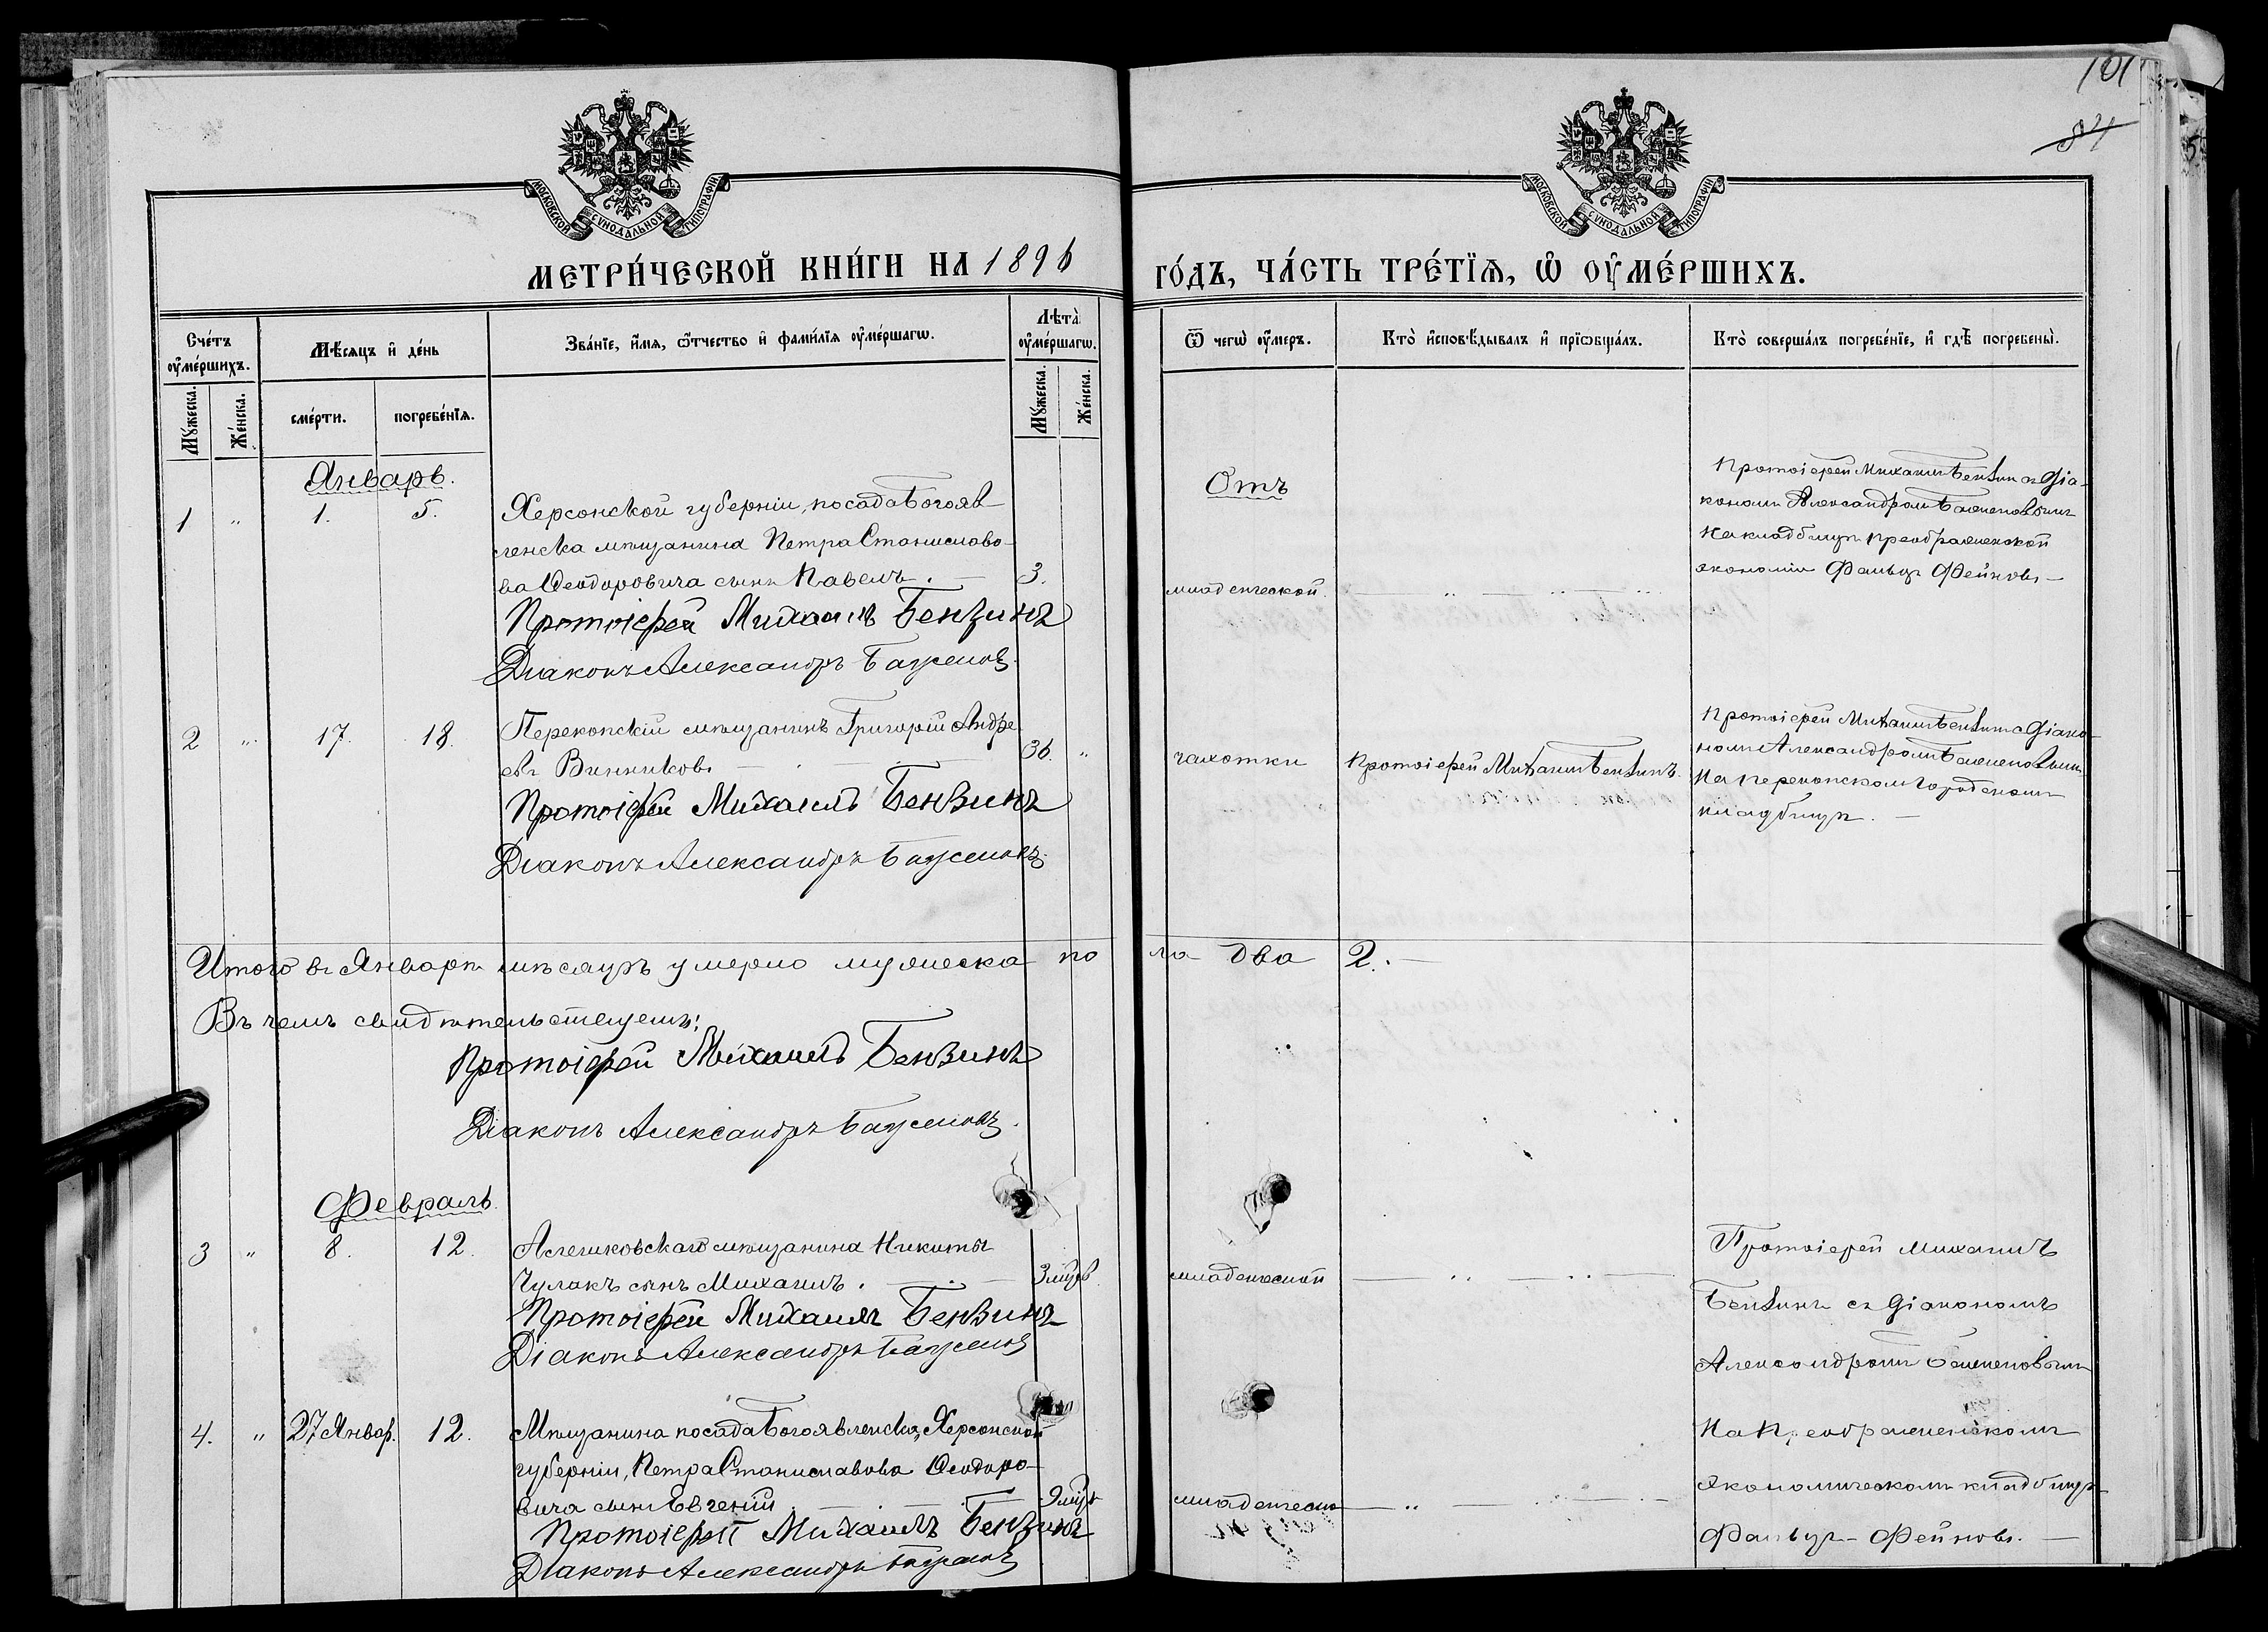 101
84
МОСКОВСКОЙ СѴНОДАЛЬНОЙ ТИПОГРАФІИ
МОСКОВСКОЙ СѴНОДАЛЬНОЙ ТИПОГРАФІИ
МЕТРИ́ЧЕСКОЙ КНИ́ГИ НА 1896 ГО́ДЪ, ЧА́СТЬ ТРЕ́ТЇѦ, Ѽ ОУ҆МЕ́РШИХЪ.
Сче́тъ оу҆ме́ршихъ.
Му́жеска.
Же́нска.
Мѣ́сяцъ и҆ де́нь
сме́рти.
погребе́нїѧ.
Зва́нїе, и҆́мѧ, ѻ҆́тчество и҆ фами́лїѧ оу҆ме́ршагѡ.
Лѣта̀ оу҆ме́ршагѡ.
Му́жеска.
Же́нска.
Ѿ чегѡ̀ оу҆́меръ.
Кто̀ и҆сповѣ́дывалъ и҆ прїѡбща́лъ.
Кто̀ соверша́лъ погребе́нїе, и҆ гдѣ̀ погребены̀.
Январь.
1 " 1. 5.
Херсонской губерніи, посада Богояв-
ленска мѣщанина Петра Станиславо-
ва Ѳеодоровича сынъ Павелъ. — 3.
Протоіерей Михаилъ Бензинъ
Діаконъ Александръ Баженовъ.
Отъ
младенческой.
Протоіерей Михаилъ Бензинъ съ діа-
кономъ Александромъ Баженовымъ
На кладбищѣ Преображенской
экономіи Фальцъ Фейновъ —
2 " 17. 18.
Перекопскій мѣщанинъ Григорій Андре
евъ Винниковъ — 36. "
Протоіерей Михаилъ Бензинъ
Діаконъ Александръ Баженовъ.
чахотки
Протоіерей Михаилъ Бензинъ.
Протоіерей Михаилъ Бензинъ съ діако-
номъ Александромъ Баженовымъ
На Перекопскомъ городскомъ
кладбищѣ. —
Итого въ Январѣ мѣсяцѣ умерло мужеска по ла два 2. —
Въ чемъ свидѣтельствуемъ:
Протоіерей Михаилъ Бензинъ
Діаконъ Александръ Баженовъ.
Февраль.
3 " 8. 12.
Алешковскаго мѣщанина Никиты
Чулакъ сынъ Михаилъ. — 3 мѣс
Протоіерей Михаилъ Бензинъ
Діаконъ Александръ Баженовъ
младенческой
Протоіерей Михаилъ
Бензинъ съ діакономъ
Александромъ Баженовымъ
4. " 27 Январ. 12.
Мѣщанина посада Богоявленска, Херсонской
губерніи, Петра Станиславова Ѳеодоро-
вича сынъ Евгеній — 9 мѣс
Протоіерей Михаилъ Бензинъ
Діаконъ Александръ Баженовъ
младенческо
На Преображенскомъ
Экономическомъ кладбищѣ
Фальцъ-Фейновъ. —